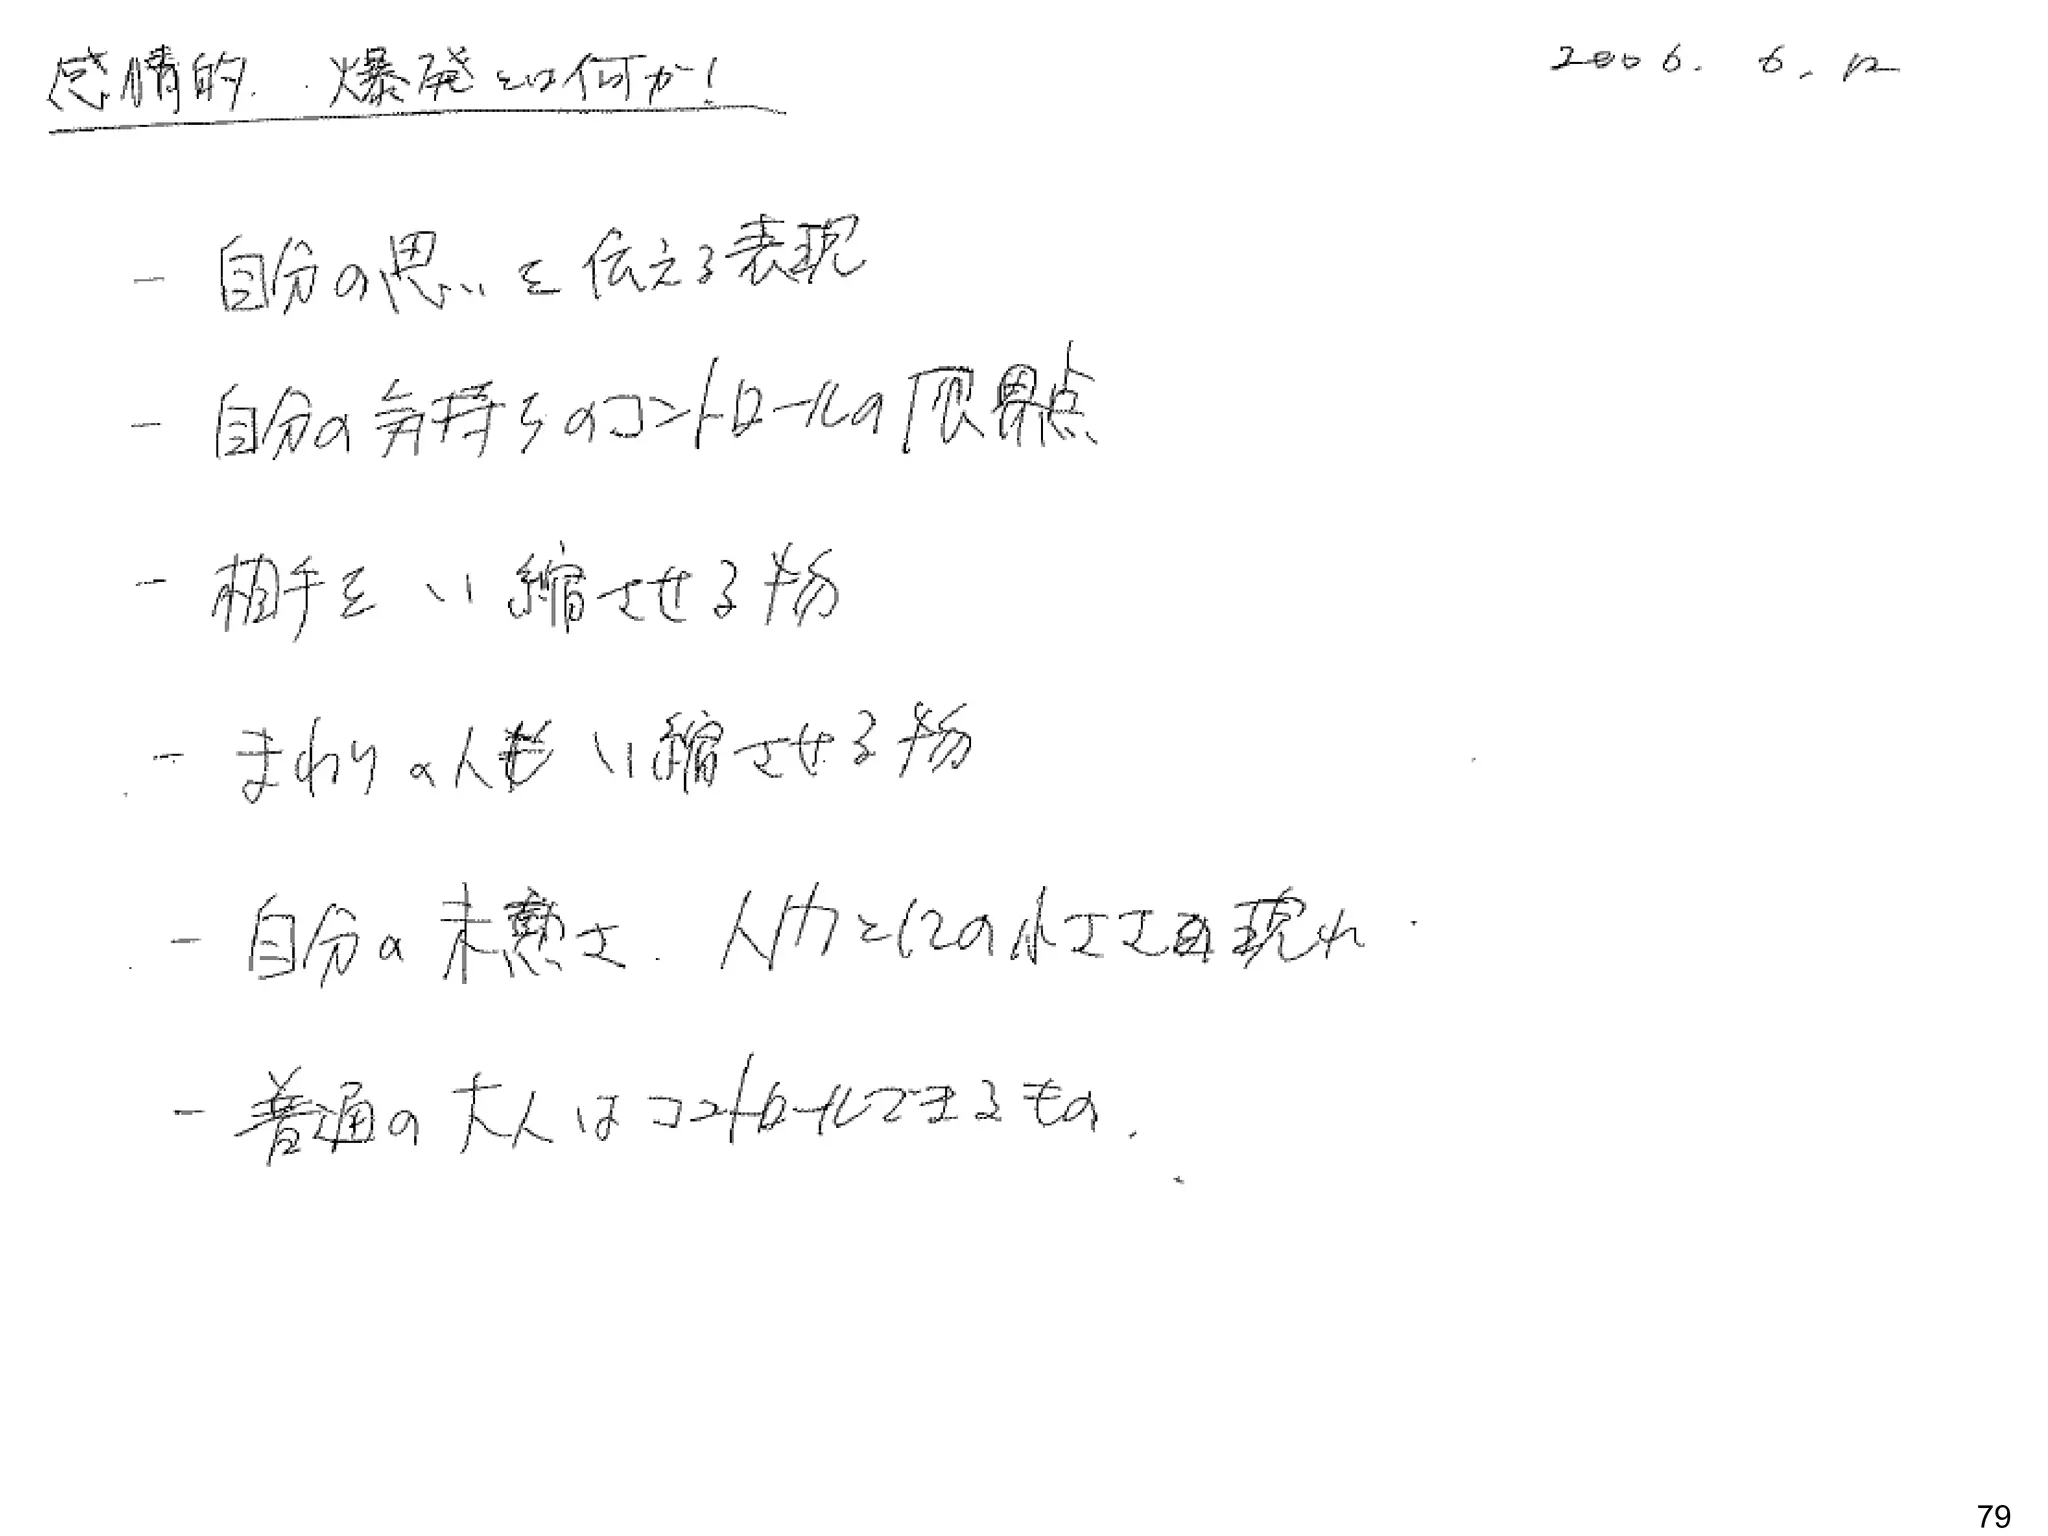 感情的 爆発とは何か! 2006. 6. 12
- 自分の思いを伝える表現
- 自分の気持ちのコントロールの限界点
- 相手をい縮させる物
- まわりの人もい縮させる物
- 自分の未熟さ. 人としての小ささの現れ
- 普通の大人はコントロールできるもの.
79